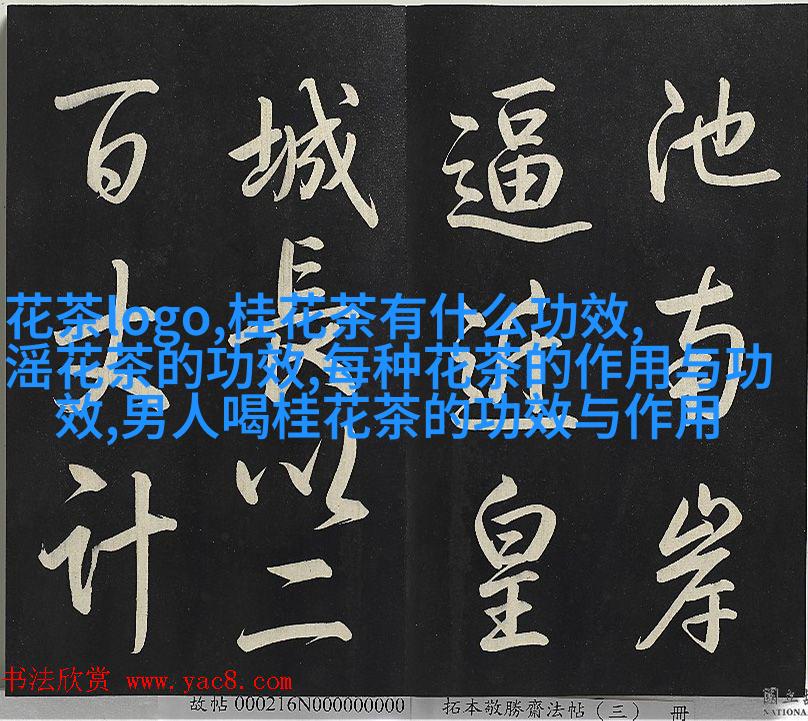 池南岸
逼進皇
城長以二
百丈計
花茶logo,桂花茶有什么功效,
滛花茶的功效,每种花茶的作用与功
效,男人喝桂花茶的功效与作用
书法欣赏 www.yac8.com
故帖 000216N000000000 拓本敬勝齋法帖（三） 冊
國立
NATIONA